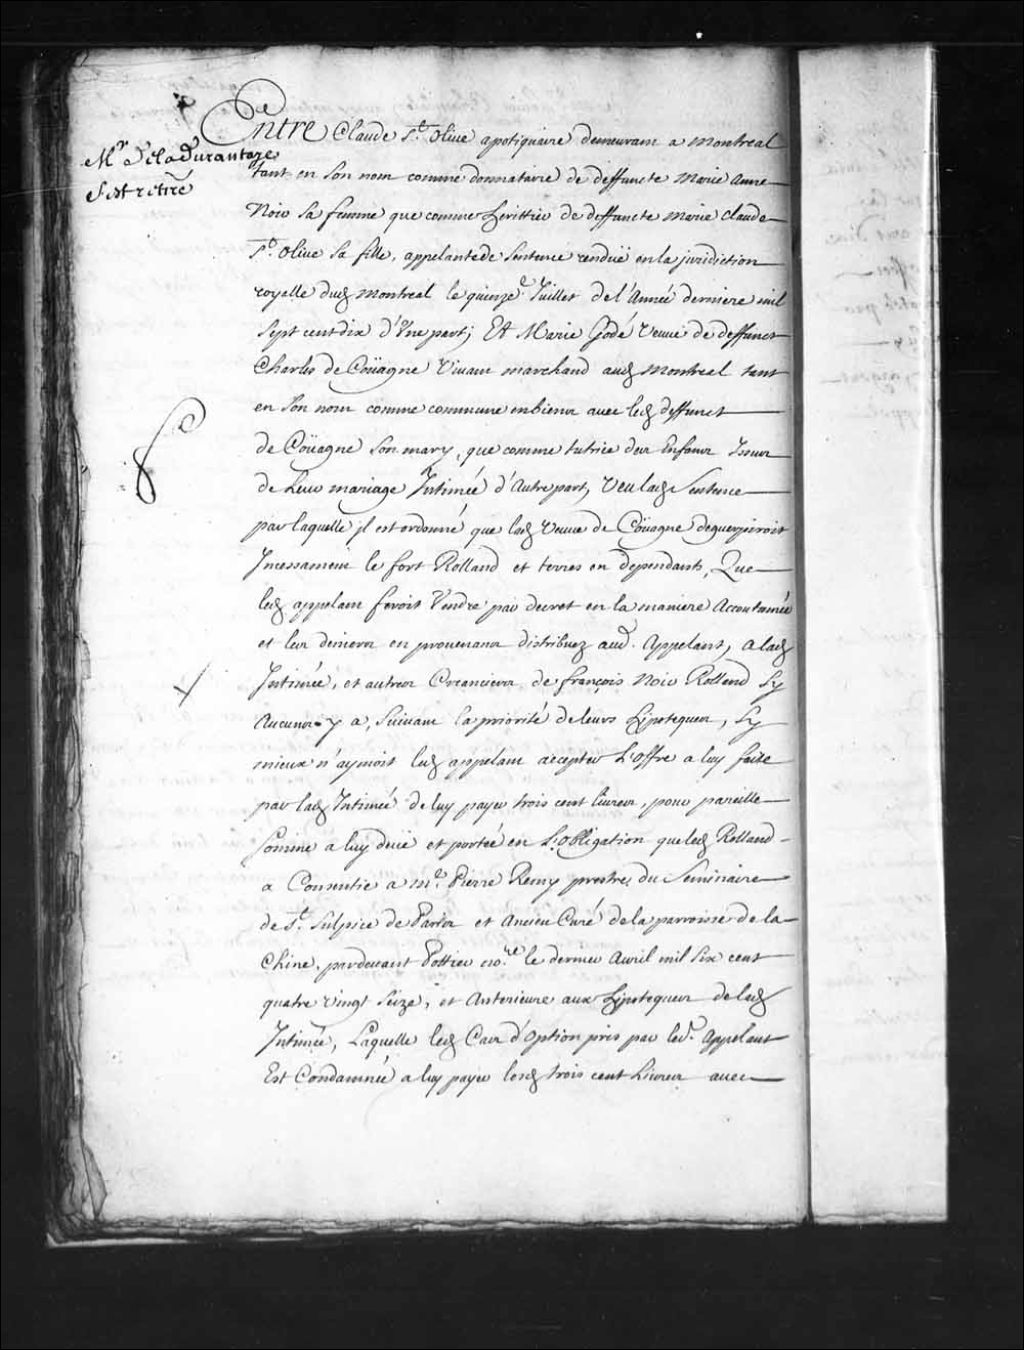 Entre Claude St. Olive apotiquaire demeurant a Montreal
Mr. dela Durantaye
s'est retiré
tant en son nom comme donnataire de deffuncte Marie Anne
Noir sa femme que comme heritier de deffuncte Marie Claude
St. Olive sa fille, appelant de sentence rendüe en la juridiction
royalle dud Montreal le quinze.e Juillet de l'Année derniere mil
sept cent dix d'Vne part; Et Marie Godé veuve de deffunct
Charles de Coüagne Vivant marchand aud Montreal tant
en son nom comme commune en biens avec led deffunct
de Coüagne son mary, que comme tutrice des Enfans Issus
de leur mariage Intimée d'Autre part, Veu lad Sentence
par laquelle jl est ordonné que lad veuve de Coüagne deguerpiroit
Incessament le fort Rolland et terres en dependants, Que
led appelant feroit Vendre par decret en la maniere Accoutumée
et les deniers en provenans distribuez aud. Appelant, a lad
Intimée, et autres Creanciers de françois Noir Rolland sy
Aucuns y a, suivant la priorité de leurs hipoteques, sy
mieux n'aymoit led appelant accepter L'offre a luy faite
par lad Intimée de luy payer trois cent livres, pour pareille
somme a luy deüe et portée en L'Obligation que led Rolland
a Consentie a Me. Pierre Remy prestre du Seminaire
de St. Sulpice de Paris et Ancien Curé de la parroisse de la
Chine, pardevant Pottier no.re le dernier Avril mil six cent
quatre vingt seize, et Anterieure aux hipoteques de lad
Intimée, Laquelle aud Cas d'option pris par led. Appelant
Est Condamnée a luy payer lesd trois cent Livres avec